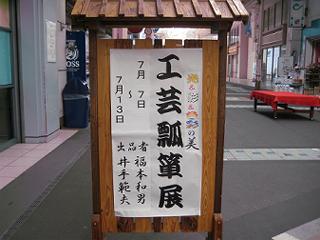 光&彩&色彩の美
工芸瓢箪展
7月 7日
～
7月13日
出品者 福本和男
井手範夫